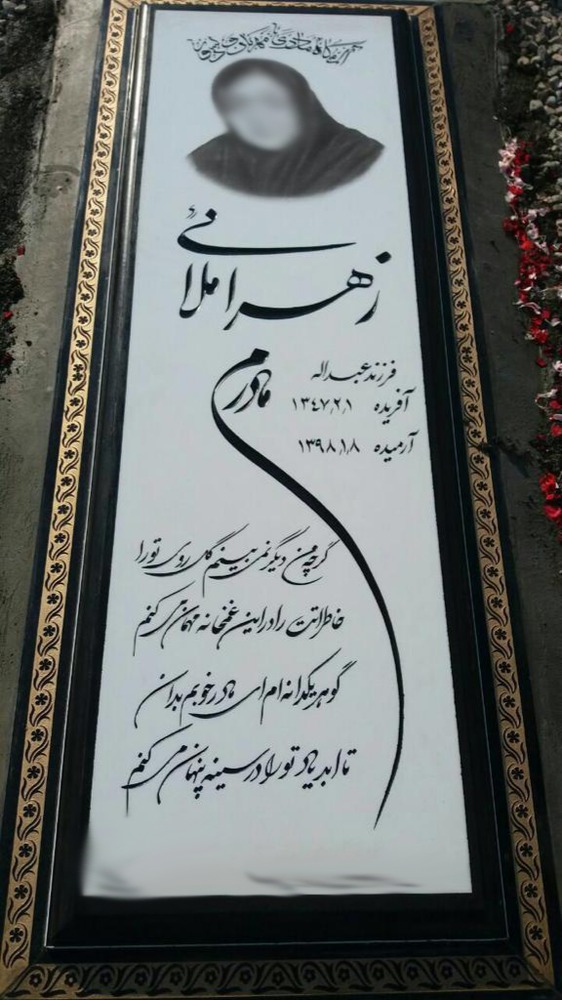 آرامگاه مادری مهربان
زهرا ملائی
مادرم
فرزند عبداله
آفریده ۱۳۴۷,۲,۱
آرمیده ۱۳۹۸,۱,۸
گرچه من دیگر نمی بینم گل روی تو را
خاطراتت را در این غمخانه مهمان می کنم
گوهر یکدانه ام ای مادر خوبم بدان
تا ابد یاد تو را در سینه پنهان می کنم